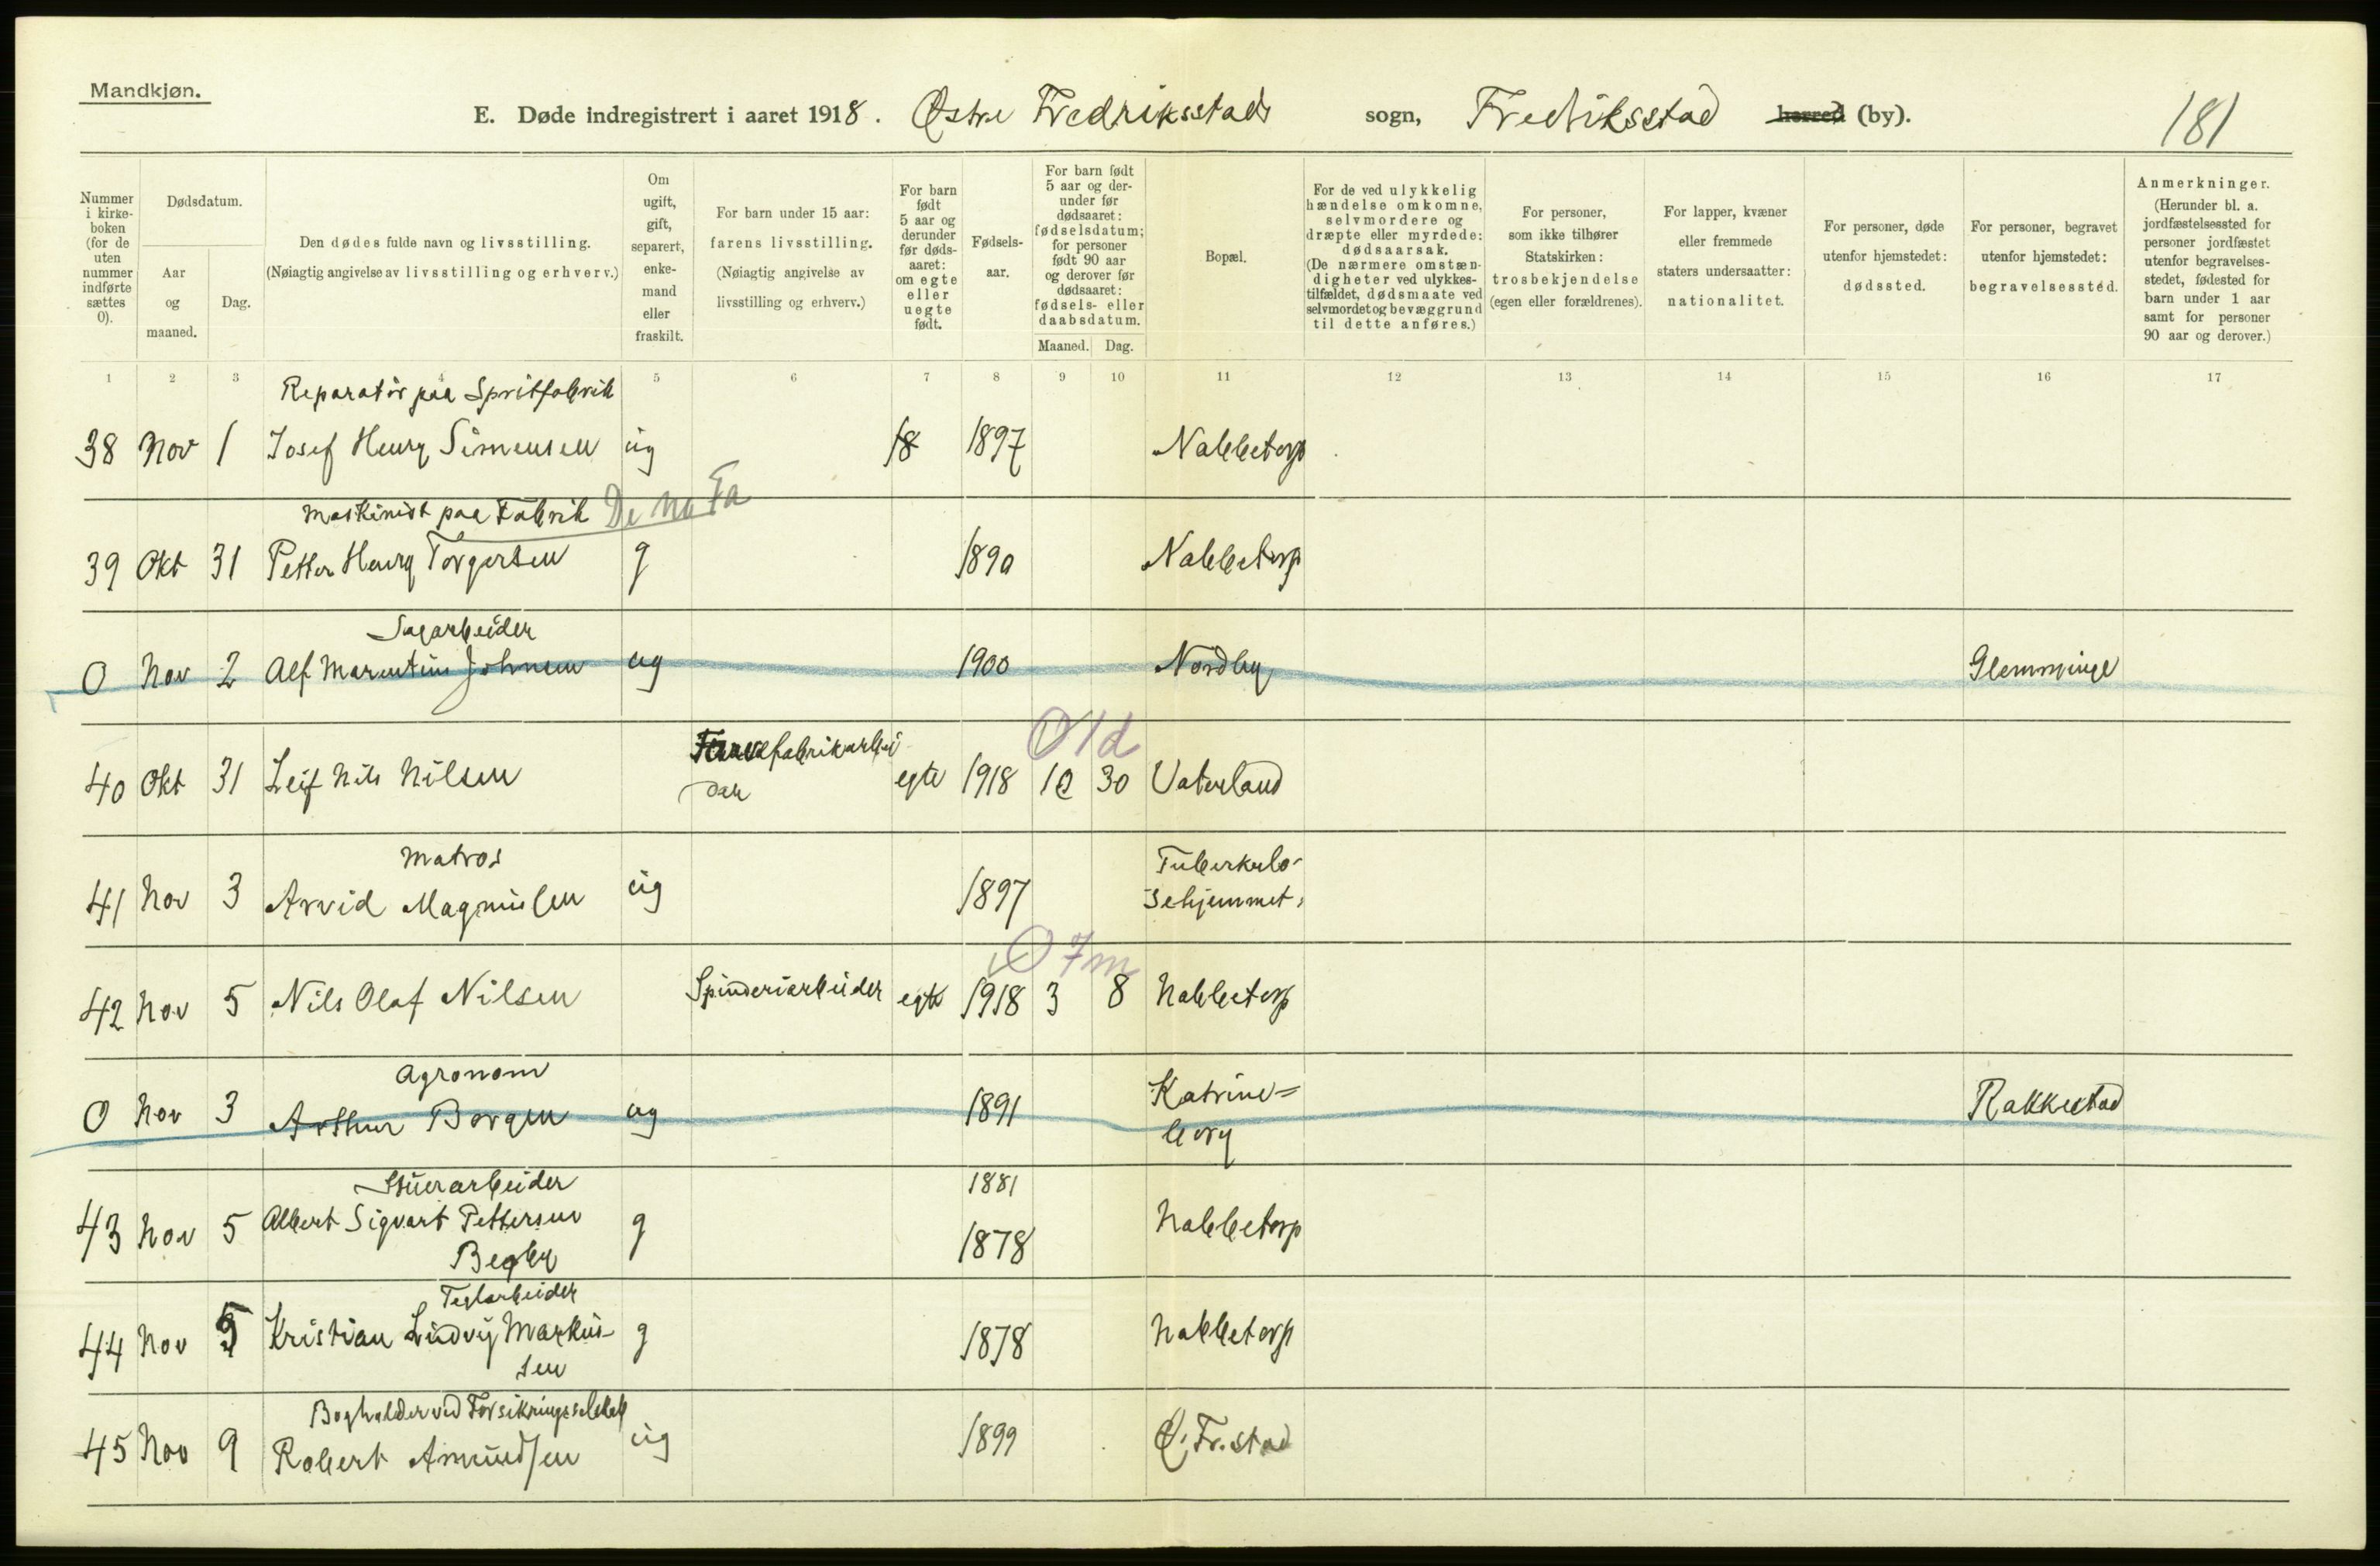 Mandkjøn.
E. Døde indregistrert i aaret 1918. Østre Fredriksstads sogn, Fredriksstad herred (by).
181
Nummer i kirke-boken (for de uten nummer indførte sættes 0).
Dødsdatum.
Aar og maaned.
Dag.
Den dødes fulde navn og livsstilling.
(Nøiagtig angivelse av livsstilling og erhverv.)
Om ugift, gift, separert, enke-mand eller fraskilt.
For barn under 15 aar:
farens livsstilling.
(Nøiagtig angivelse av livsstilling og erhverv.)
For barn født 5 aar og derunder før døds-aaret: om egte eller uegte født.
Fødsels-aar.
For barn født 5 aar og der-under før dødsaaret: fødselsdatum; for personer født 90 aar og derover før dødsaaret: fødsels- eller daabsdatum.
Maaned. Dag.
Bopæl.
For de ved ulykkelig hændelse omkomne, selvmordere og dræpte eller myrdede: dødsaarsak.
(De nærmere omstæn-digheter ved ulykkes-tilfældet, dødsmaate ved selvmordet og bevæggrund til dette anføres.)
For personer, som ikke tilhører Statskirken: trosbekjendelse (egen eller forældrenes).
For lapper, kvæner eller fremmede staters undersaatter: nationalitet.
For personer, døde utenfor hjemstedet: dødssted.
For personer, begravet utenfor hjemstedet: begravelsessted.
Anmerkninger.
(Herunder bl. a. jordfæstelsessted for personer jordfæstet utenfor begravelses-stedet, fødested for barn under 1 aar samt for personer 90 aar og derover.)
1 2 3 4 5 6 7 8 9 10 11 12 13 14 15 16 17
Reparatør paa Spritfabrik
38 Nov 1 Josef Henry Simensen ug 18 1897 Nabbetorp
Maskinist paa Fabrik De No Fa
39 Okt 31 Petter Henry Torgersen g 1890 Nabbetorp
Sagarbeider
0 Nov 2 Alf Marentius Johnsen ug 1900 Nordby Glemminge
01d
40 Okt 31 Leif Nils Nilsen fabrikarbei
der egte 1918 10 30 Vaterland
Matros
41 Nov 3 Arvid Magnussen ug 1897 Tuberkulo-
sehjemmet
0 7m
42 Nov 5 Nils Olaf Nilsen Spinderiarbeider egte 1918 3 8 Nabbetorp
Agronom
0 Nov 3 Arthur Borgen ug 1891 Katrine=
borg Rakkestad
Stuerarbeider 1881
43 Nov 5 Albert Sigvart Pettersen g 1878 Nabbetorp
Begby
Teglarbeider
44 Nov 5 Kristian Ludvig Markus-
sen g 1878 Nabbetorp
Bogholder ved Forsikringsselskab
45 Nov 9 Robert Amundsen ug 1899 Ø. Fr.stad